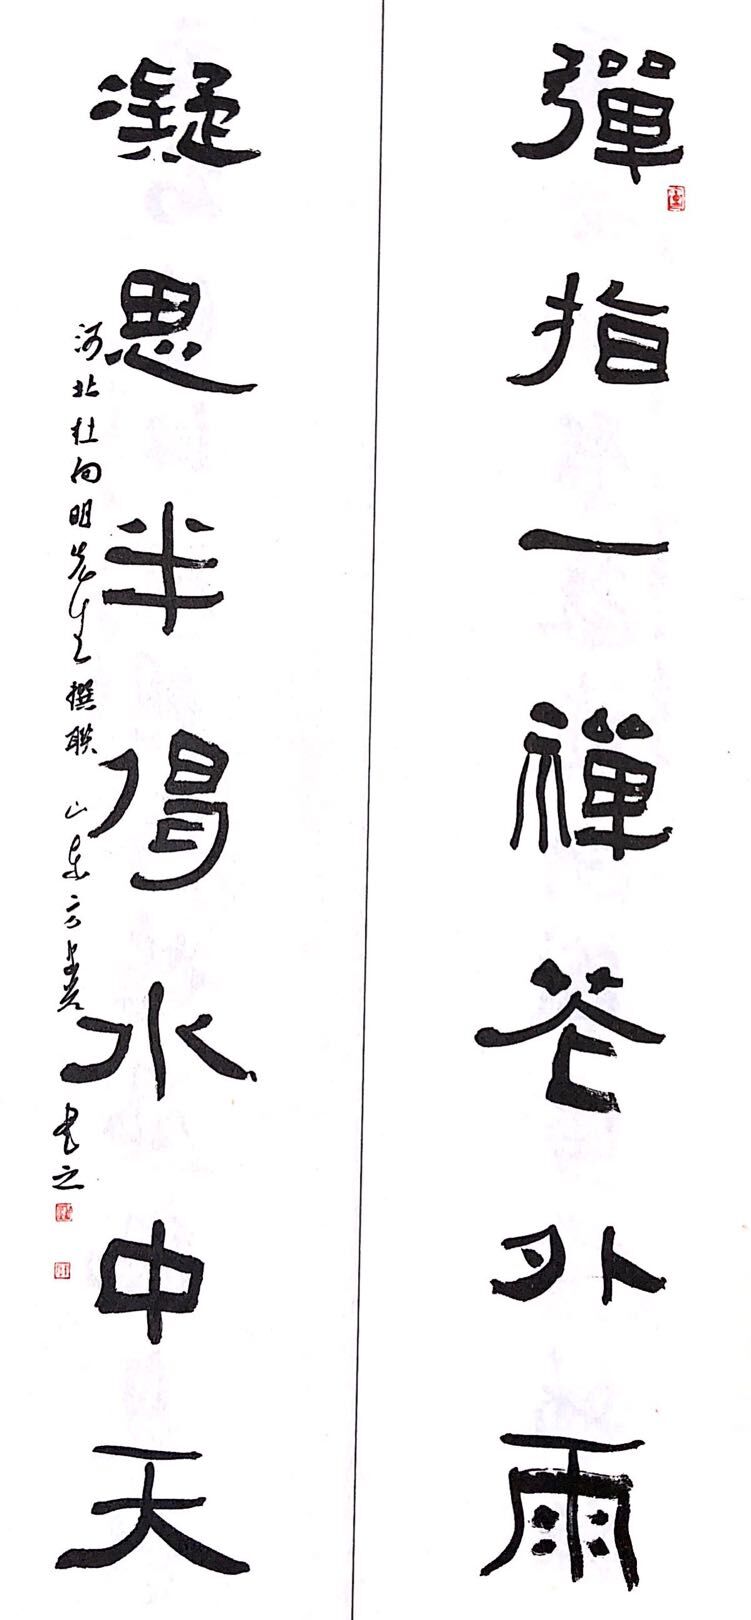 彈指一禪花外雨
凝思半偈水中天
河北杜向明先生撰联 山东方 书之